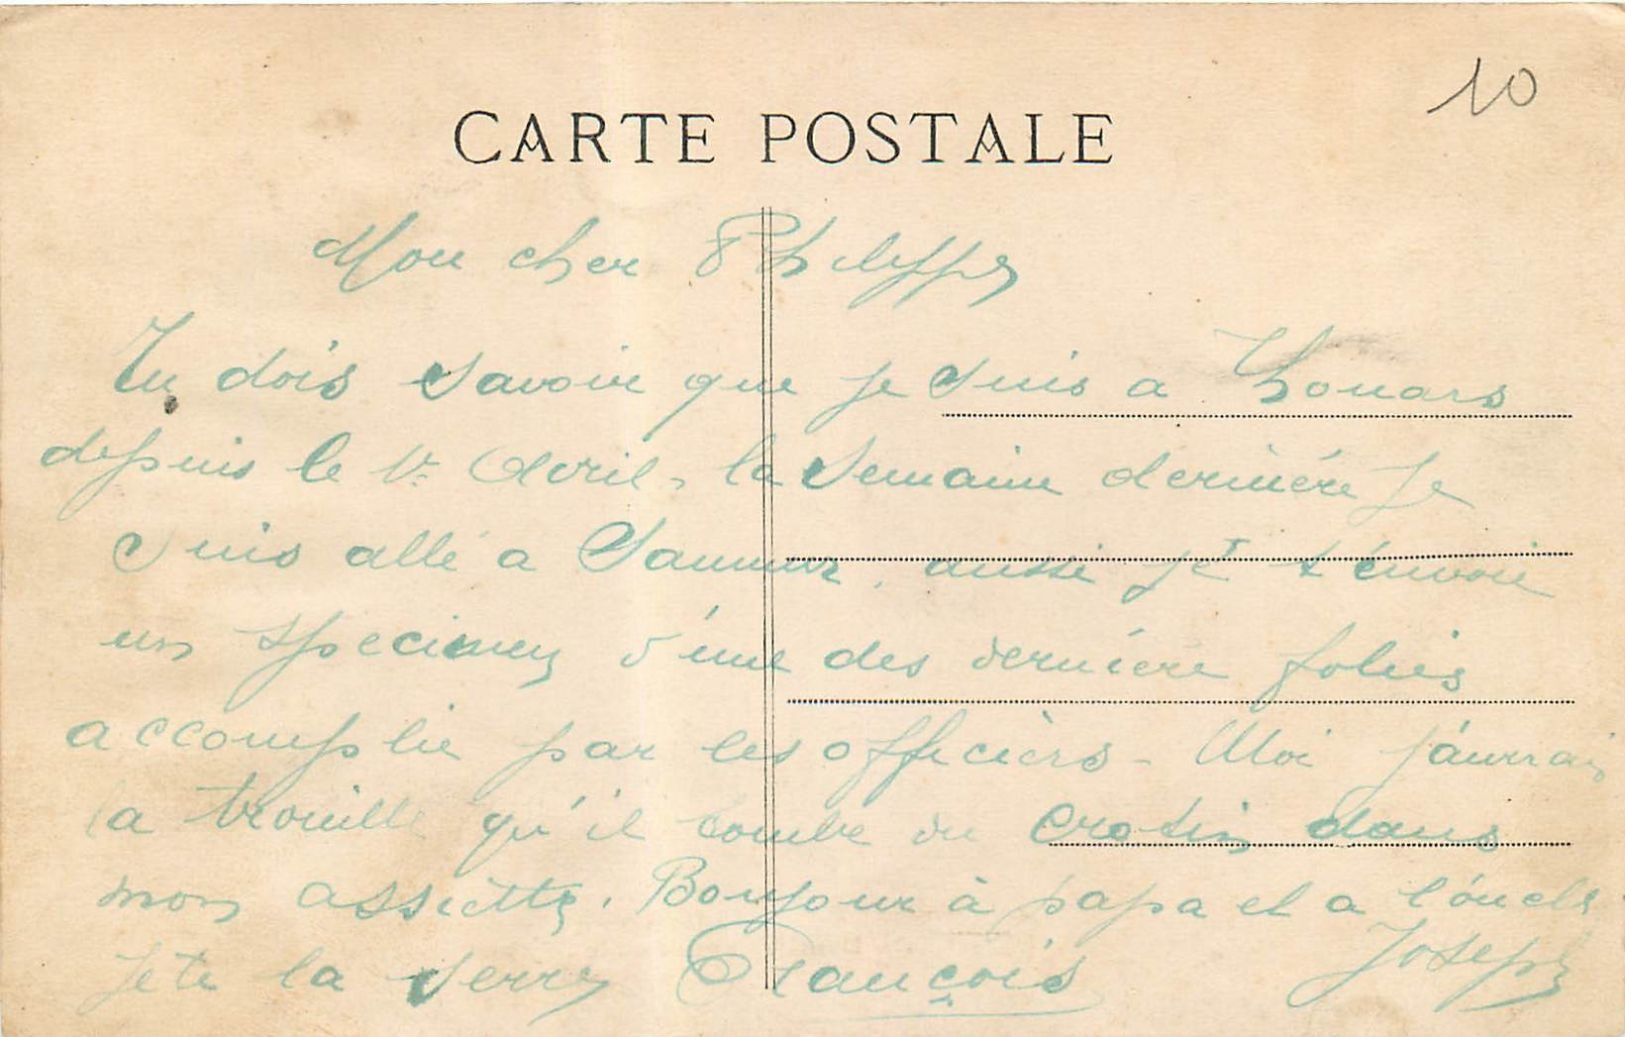 10
CARTE POSTALE
Mon cher Philippe
Tu dois savoir que je suis a Thouars
depuis le 1er Avril, la semaine dernière je
suis allé a Saumur, aussi je t'envoie
un specimen d'une des dernière folies
accomplie par les officièrs - Moi j'aurrais
la trouille qu'il tombe du crotin dans
mon assiette. Bonjour à papa et a l'oncle
Joseph
Je te la serre François